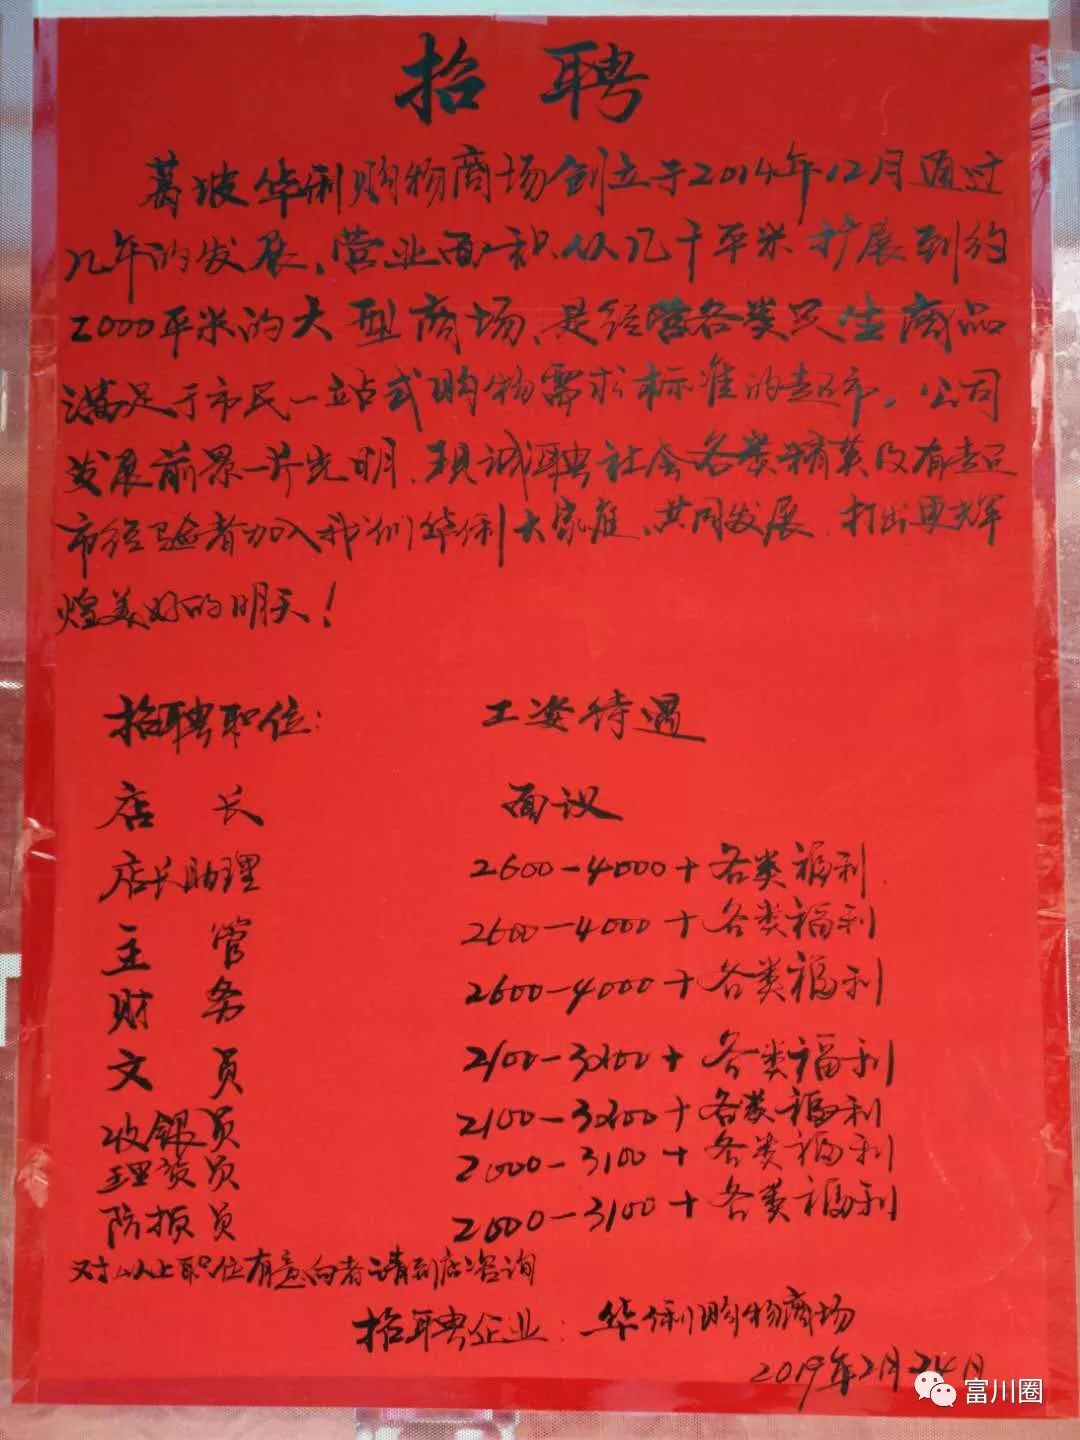 招聘
葛坡华俐购物商场创立于2014年12月通过
几年的发展、营业面积从几千平米扩展到约
2000平米的大型商场、是经营各类民生商品
满足于市民一站式购物需求标准的超市。公司
发展前景一片光明.现诚聘社会各类精英及有超
市经验者加入我们华俐大家庭、共同发展.打出更辉
煌美好的明天!
招聘职位: 工资待遇
店长 面议
店长助理 2600-4000+各类福利
主管 2600-4000+各类福利
财务 2600-4000+各类福利
文员 2100-3200+各类福利
收银员 2100-3200+各类福利
理货员 2000-3100+各类福利
防损员 2000-3100+各类福利
对于以上职位有意向者请到店咨询
招聘企业:华俐购物商场
2019年2月24日
富川圈